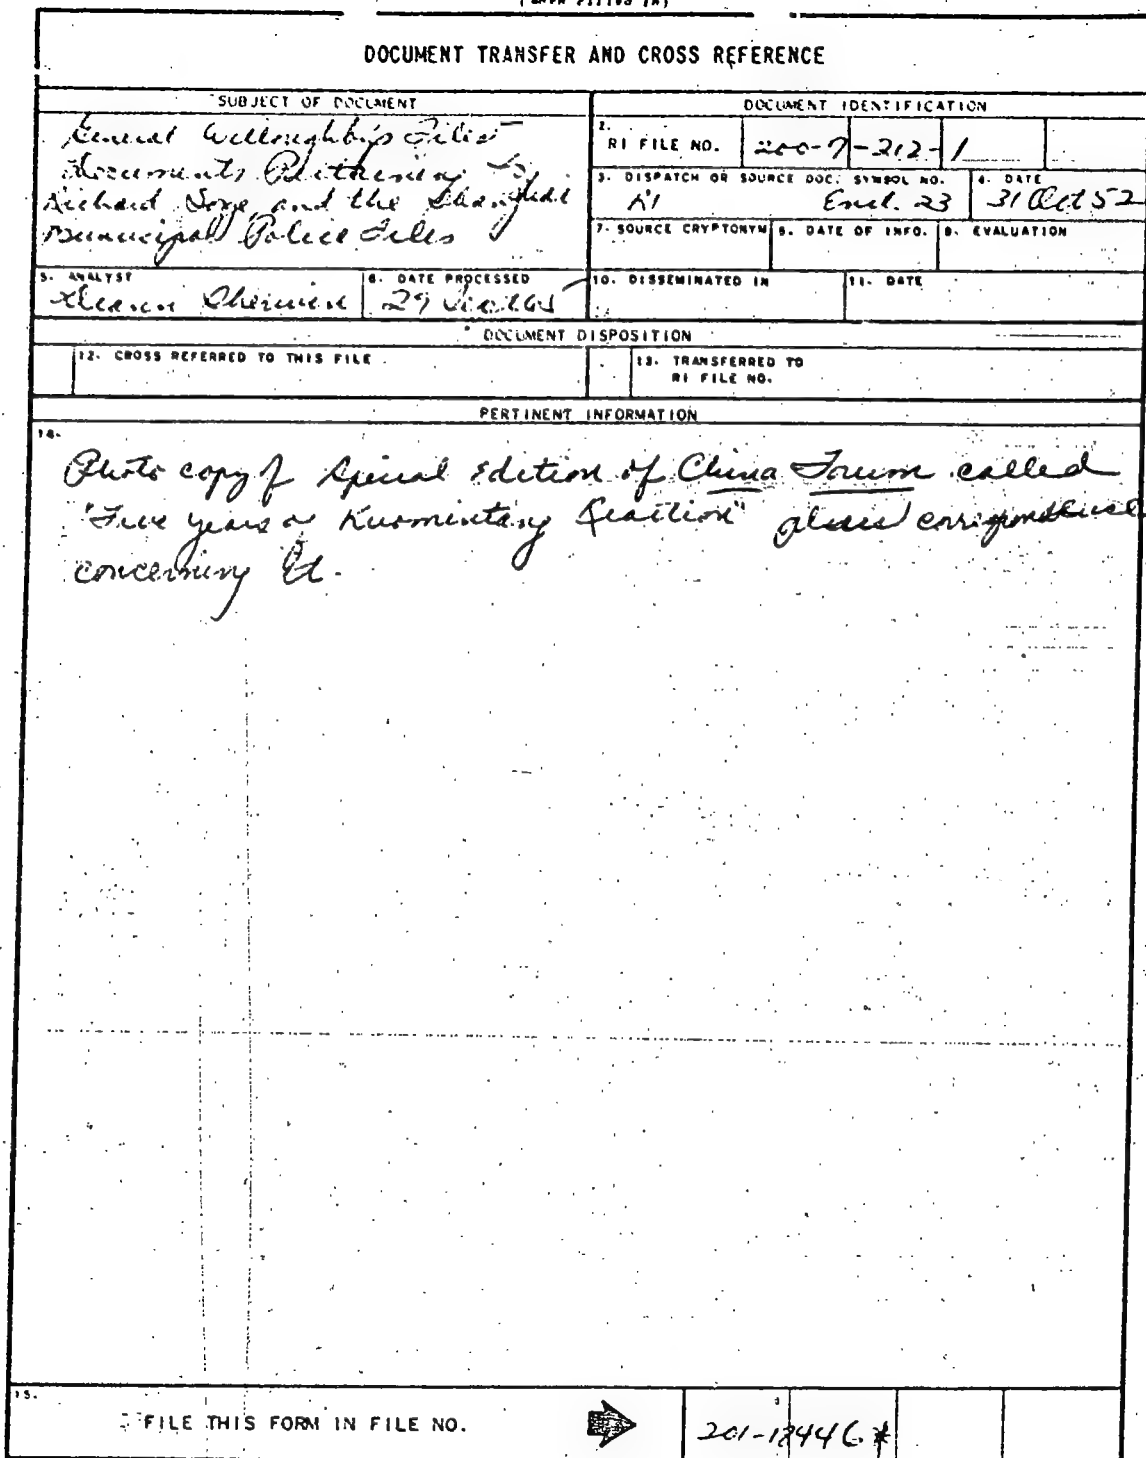 (WHEN FILLED IN)
DOCUMENT TRANSFER AND CROSS REFERENCE
SUBJECT OF DOCUMENT
General Willoughby's Files
Documents Pertaining to
Richard Sorge and the Shanghai
Municipal Police Files
DOCUMENT IDENTIFICATION
2. RI FILE NO. 200-7-212-1
3. DISPATCH OR SOURCE DOC. SYMBOL NO. Encl. 23
4. DATE 31 Oct 52
7. SOURCE CRYPTONYM
8. DATE OF INFO.
9. EVALUATION
5. ANALYST
6. DATE PROCESSED 29
10. DISSEMINATED IN
11. DATE
DOCUMENT DISPOSITION
12. CROSS REFERRED TO THIS FILE
13. TRANSFERRED TO
RI FILE NO.
PERTINENT INFORMATION
14.
Photo copy of Special Edition of China Forum called
"Five years of Kuomintang Reaction" plus correspondence
concerning it.
15.
FILE THIS FORM IN FILE NO.